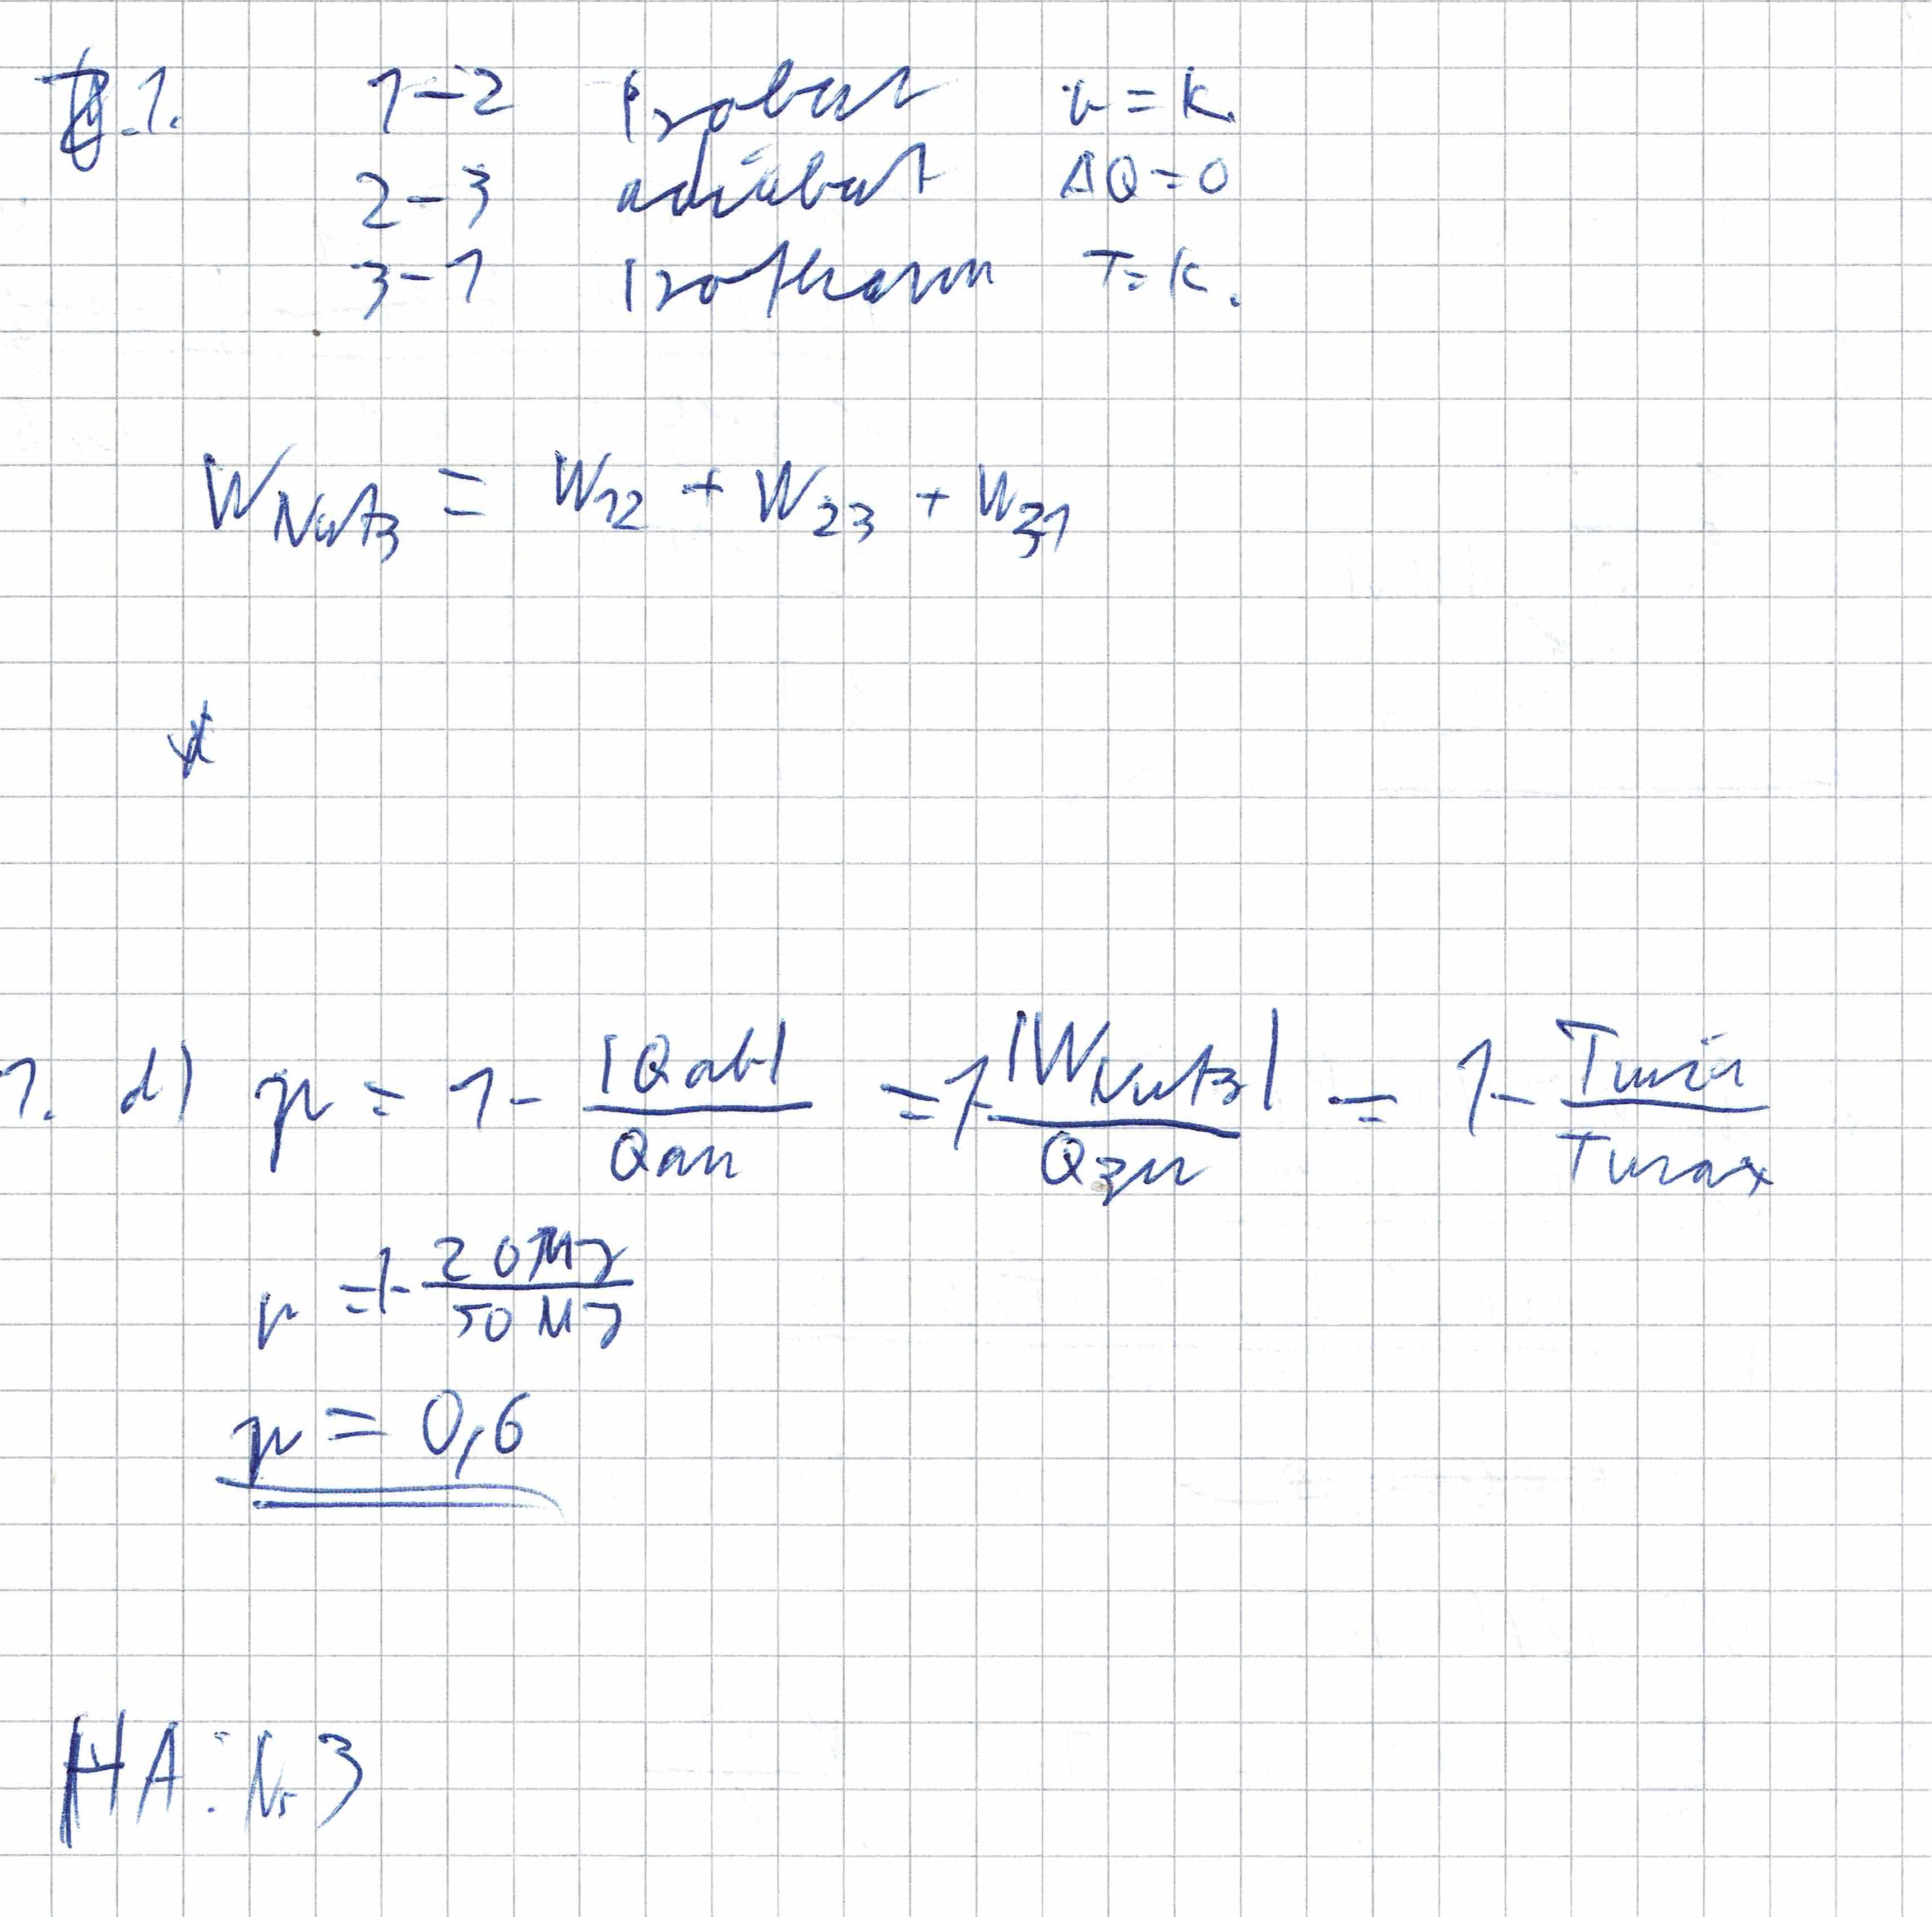 1. 1-2 isobar v = k.
2-3 adiabat ΔQ = 0
3-1 Isotherm T = k.
W_Nutz = W_12 + W_23 + W_31
1. d) η = 1 - |Qab| / Qan = 1 - |W_Nutz| / Q_zu = 1 - Tmin / Tmax
η = 1 - 20 MJ / 50 MJ
η = 0,6
HA: Nr 3